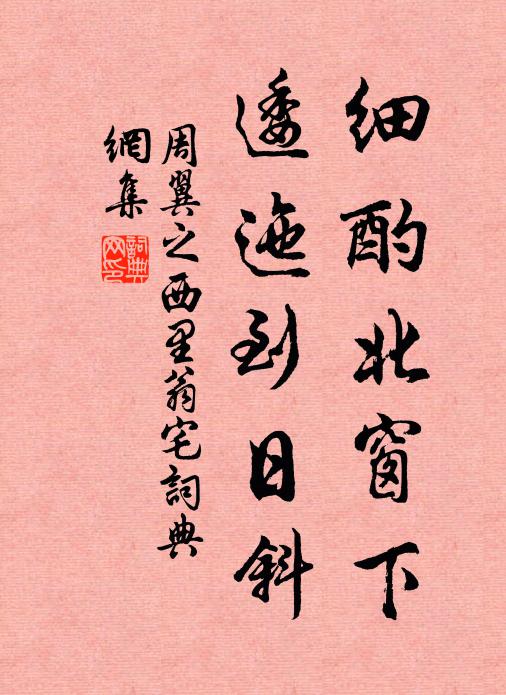 細酌北窗下
逶迤到日斜
周翼之西里翁宅詞典
網集
詞典
网印